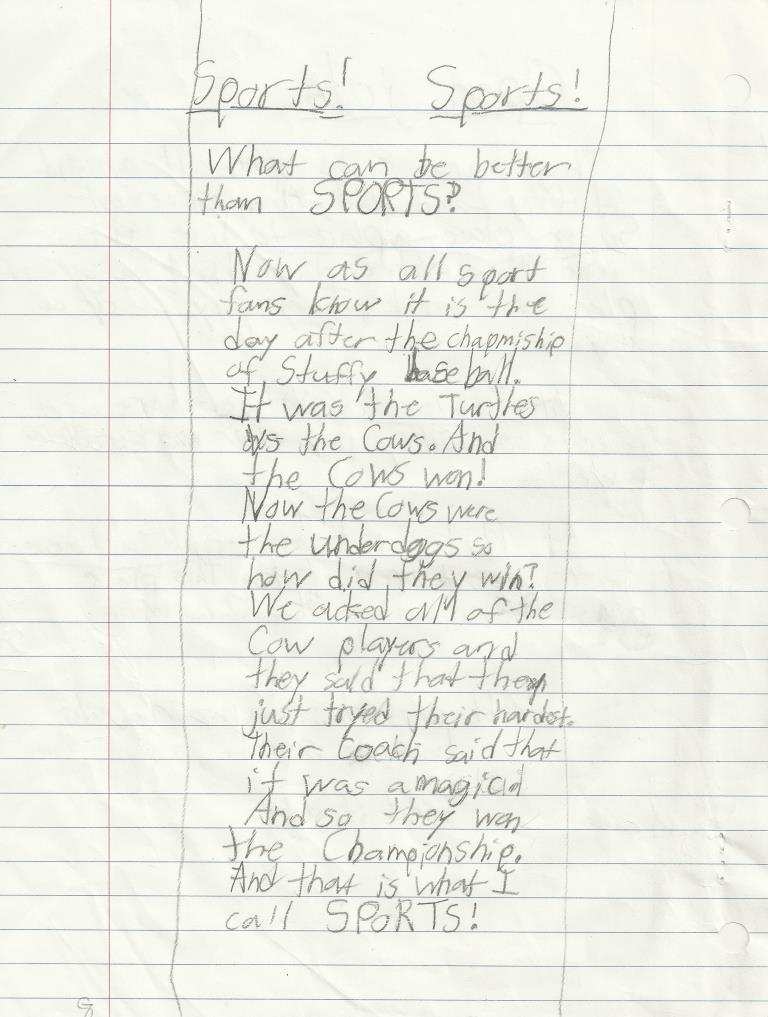 Sports! Sports!
What can be better
than SPORTS?
Now as all sport
fans know it is the
day after the chapmiship
of Stuffy baseball.
It was the Turtles
vs the Cows. And
the Cows won!
Now the Cows were
the underdogs so
how did they win?
We acked all of the
Cow players and
they said that they
just tryed their hardest.
Their Coach said that
it was a magical
And so they won
the Championship.
And that is what I
call SPORTS!